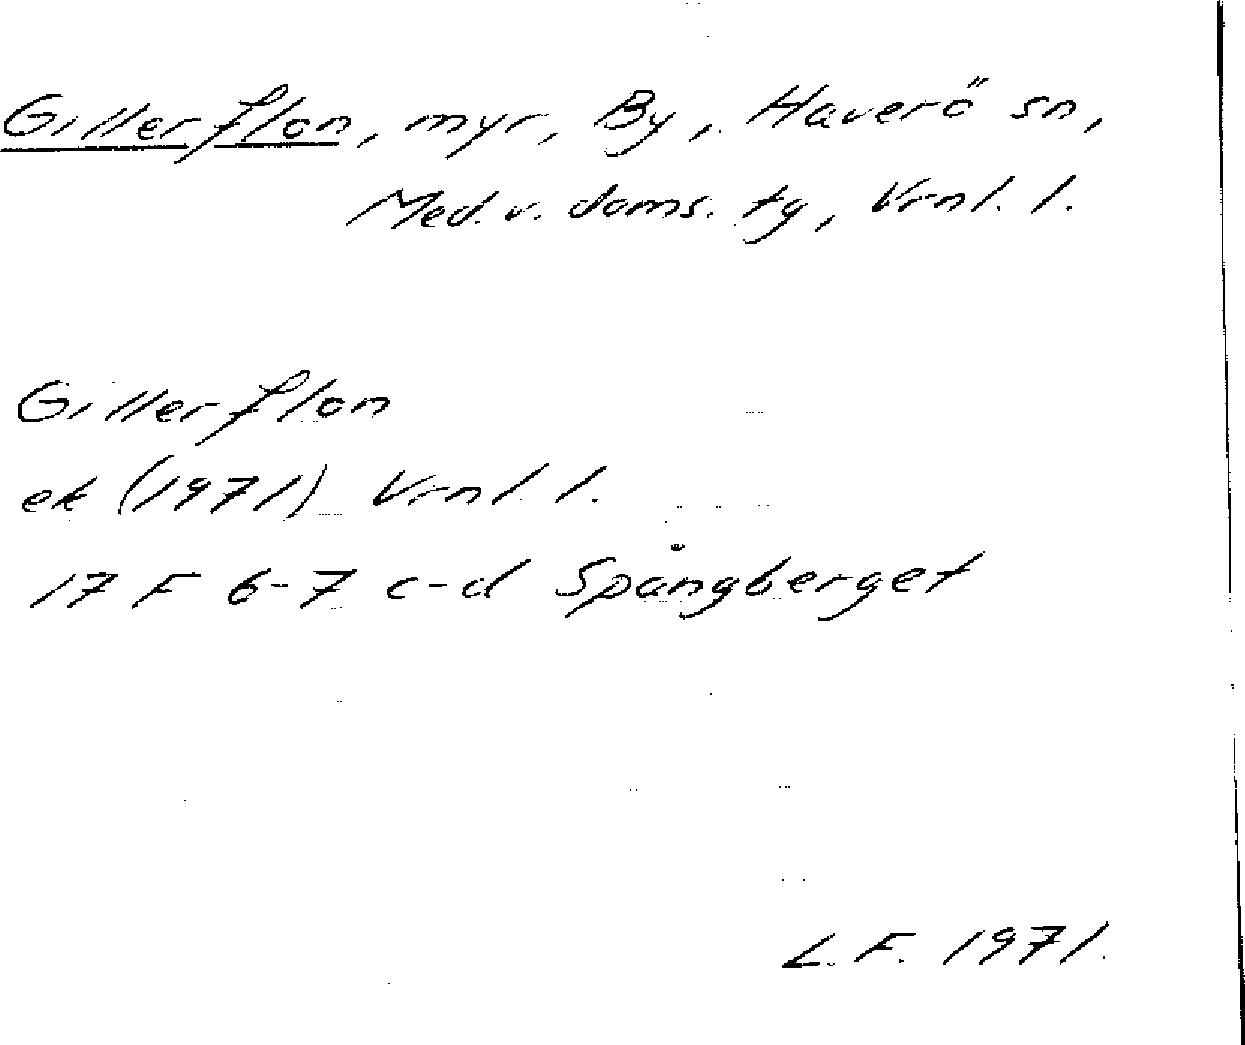 Gillerflon, myr, By, Haverö sn,
Med. v. doms. tg, Vrnl. l.
Gillerflon
ek (1971) Vrnl. l.
17 F 6-7 c-d Spångberget
L. F. 1971.